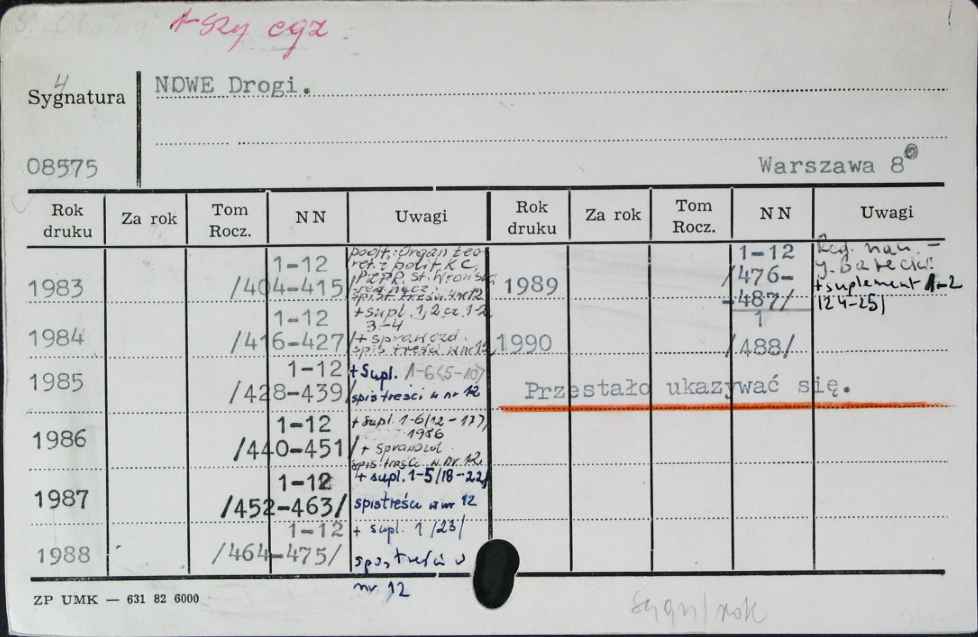 1-szy egz.
4
Sygnatura
NOWE Drogi.
08575
Warszawa 8°
Rok druku Za rok Tom Rocz. NN Uwagi Rok druku Za rok Tom Rocz. NN Uwagi
1983 1-12 /404-415/
podt.: Organ teoret. i polit. KC
PZPR. St. Wroński
spis treści w nr 12
1984 1-12 /416-427/
+ supl. 1, 2, cz. 1-2,
3-4
+ sprawozd.
spis treści w nr 12
1985 1-12 /428-439/
+ Supl. 1-6 (5-10)
spis treści w nr 12
1986 1-12 /440-451/
+ supl 1-6/12-17/,
1986
+ sprawozd.
spis treści w nr 12
1987 1-12 /452-463/
+ supl. 1-5/18-22/
spis treści w nr 12
1988 1-12 /464-475/
+ supl. 1 /23/
spis treści w
nr. 12
1989 1-12 /476-
-487/
Red. nacz. –
+ suplement 1-2
/24-25/
1990 1 /488/
Przestało ukazywać się.
ZP UMK — 631 82 6000
sygn/rok